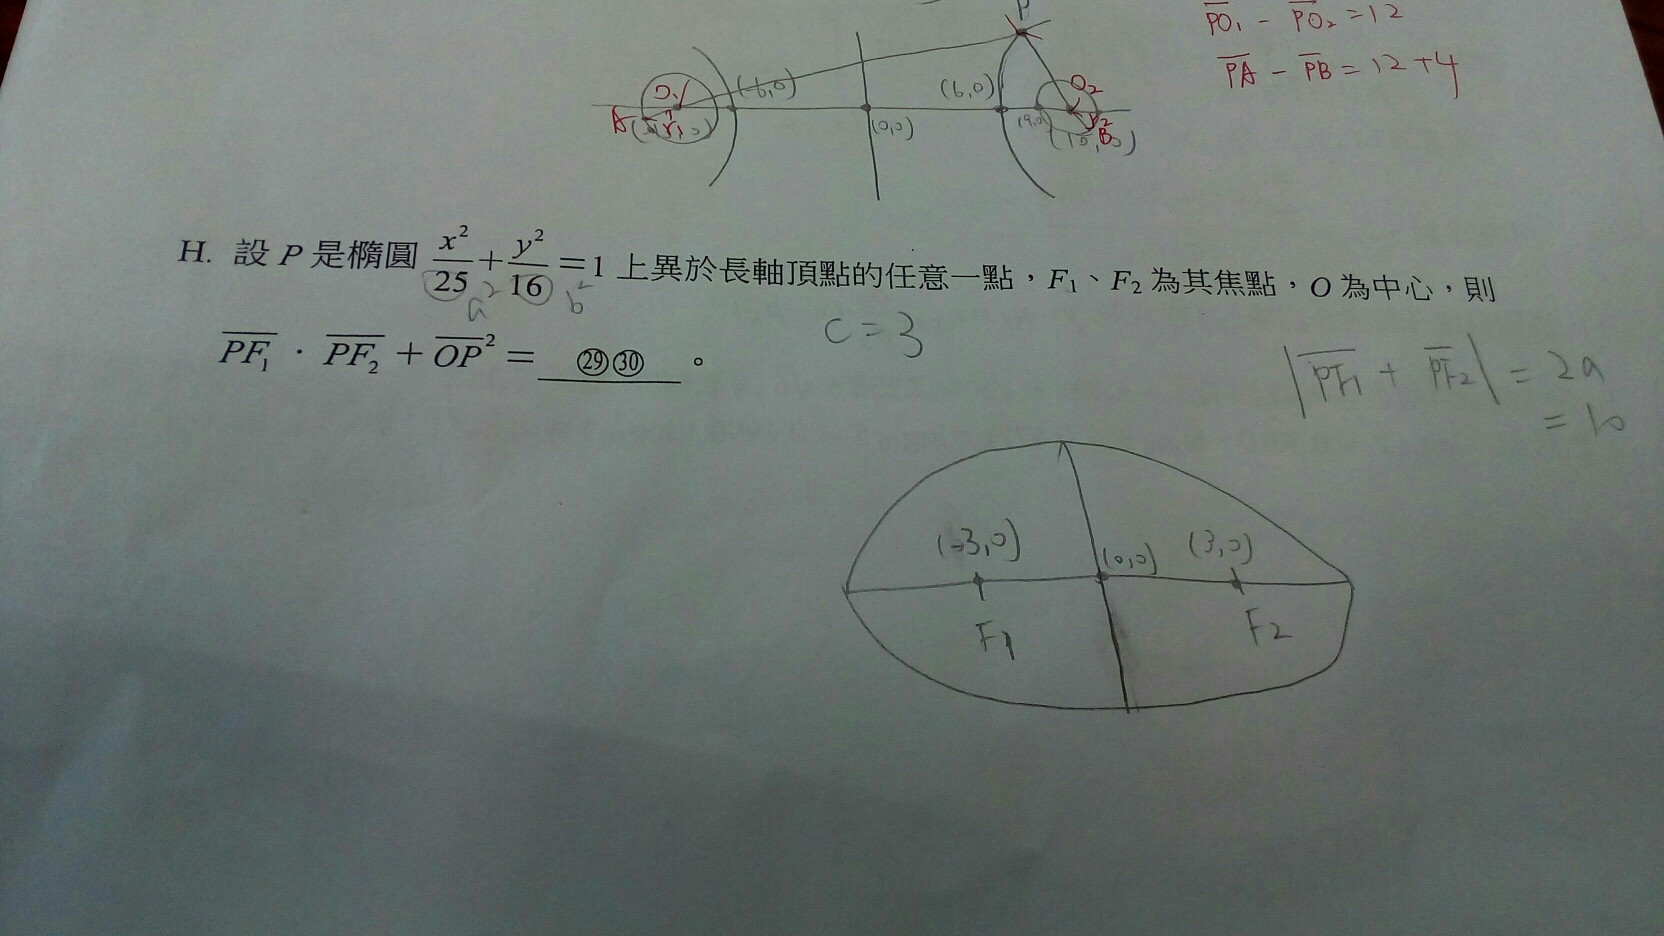 P
PO₁ - PO₂ = 12
PA - PB = 12 + 4
O₁ (-6,0) (6,0) O₂
A r₁ (0,0) B
H. 設 P 是橢圓 x²/25 + y²/16 = 1 上異於長軸頂點的任意一點，F₁、F₂ 為其焦點，O 為中心，則
a² b²
PF₁ · PF₂ + OP² = ㉙㉚ 。
c = 3
|PF₁ + PF₂| = 2a
= 10
(-3,0) (0,0) (3,0)
F₁ F₂